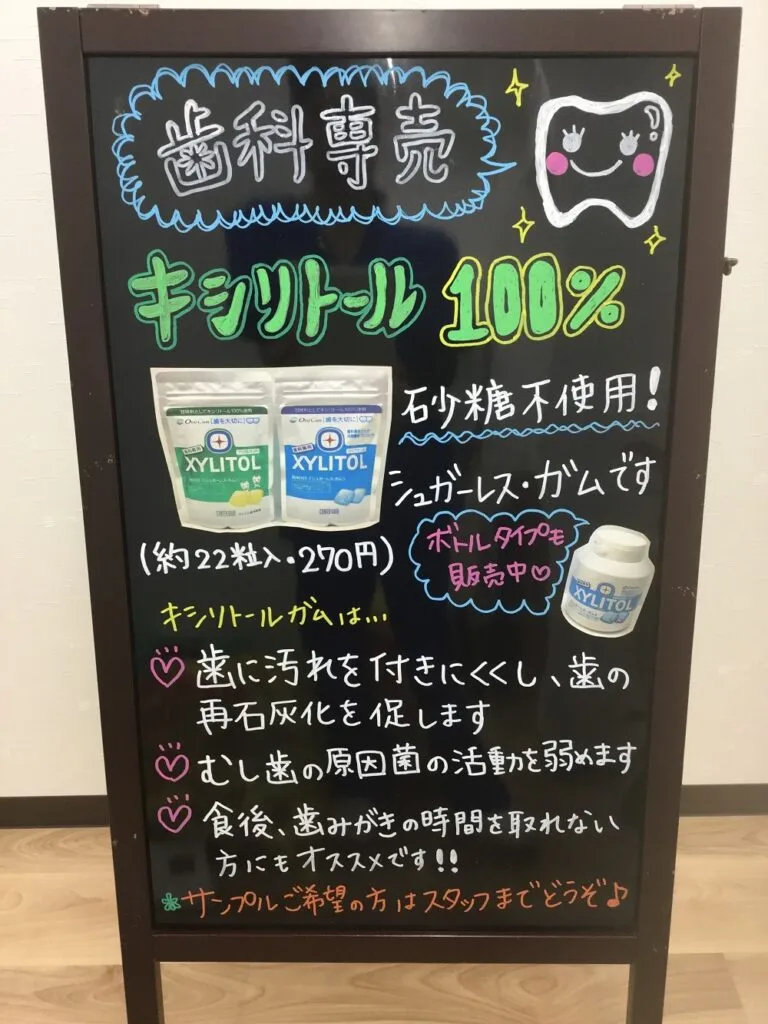 歯科専売
キシリトール 100%
砂糖不使用!
シュガーレス・ガムです
XYLITOL
XYLITOL
(約22粒入・270円)
ボトルタイプも
販売中♡
XYLITOL
キシリトールガムは…
♡ 歯に汚れを付きにくくし、歯の
再石灰化を促します
♡ むし歯の原因菌の活動を弱めます
♡ 食後、歯みがきの時間を取れない
方にもオススメです!!
サンプルご希望の方はスタッフまでどうぞ♪